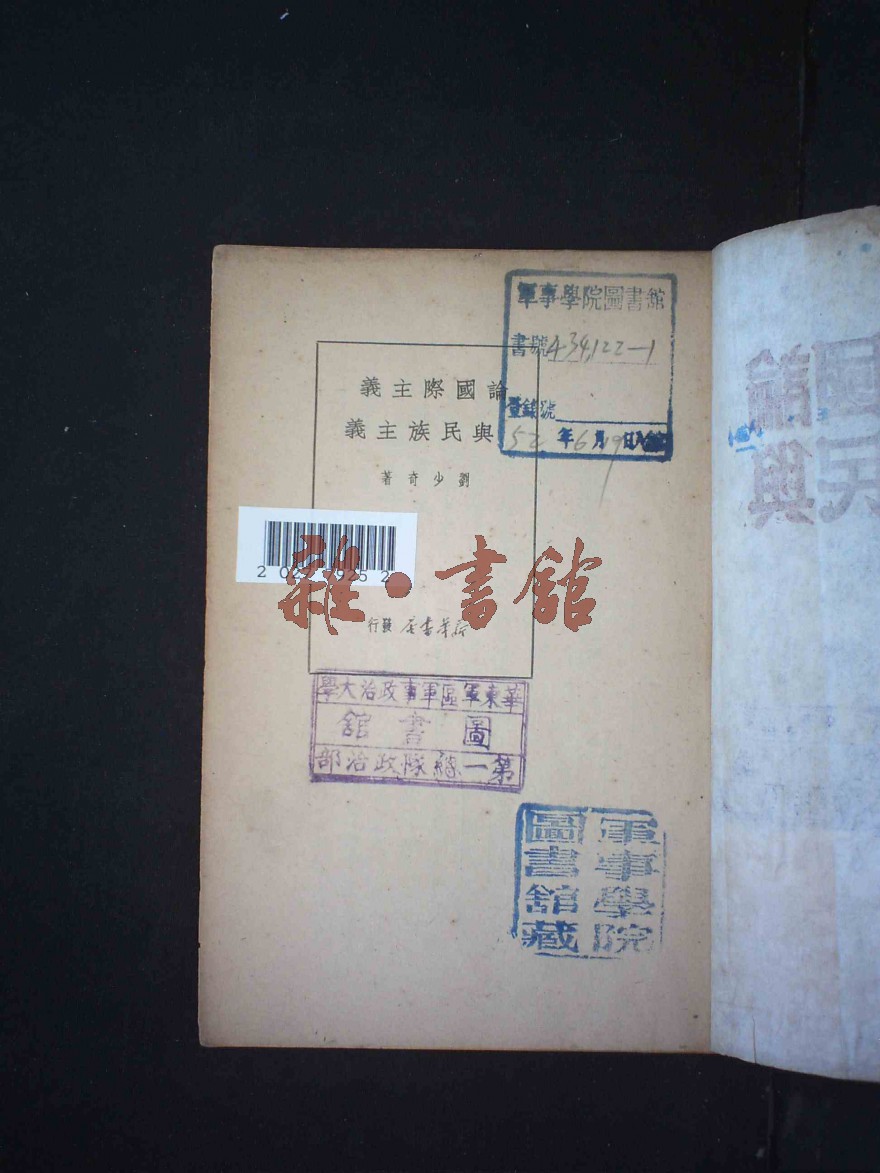 論國際主義
與民族主義
劉少奇著
新華書店發行
軍事學院圖書館
書號A34,122-1
登錄號
52年6月19日
華東軍區軍事政治大學
圖書館
第一總隊政治部
軍事學院
圖書館藏
雜·書館
論
與
國
民